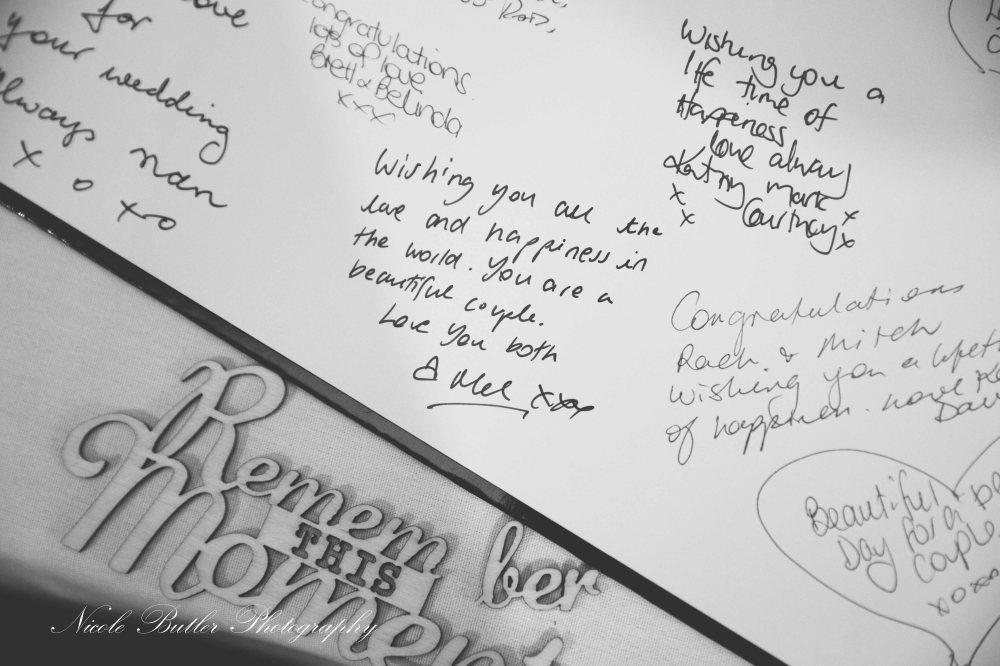 love
for
your wedding
always nan
x o xo
Congratulations
lots of love
Brett & Belinda
xxx
Wishing you a
life time of
Happiness
love always
mark
Courtney x
x x x
Wishing you all the
love and happiness in
the world. You are a
beautiful couple.
Love you both
Mel xxx
Congratulations
Rach & Mitch
wishing you a
of happiness.
Beautiful
Day for a
couple
xoxo
Remember
THIS
Moment
Nicole Butler Photography